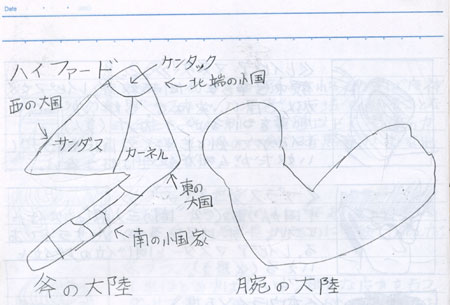 Date
ケンタック
ハイファード
←北端の小国
西の大国
サンダス
カーネル
東の
大国
南の小国家
斧の大陸
腕の大陸